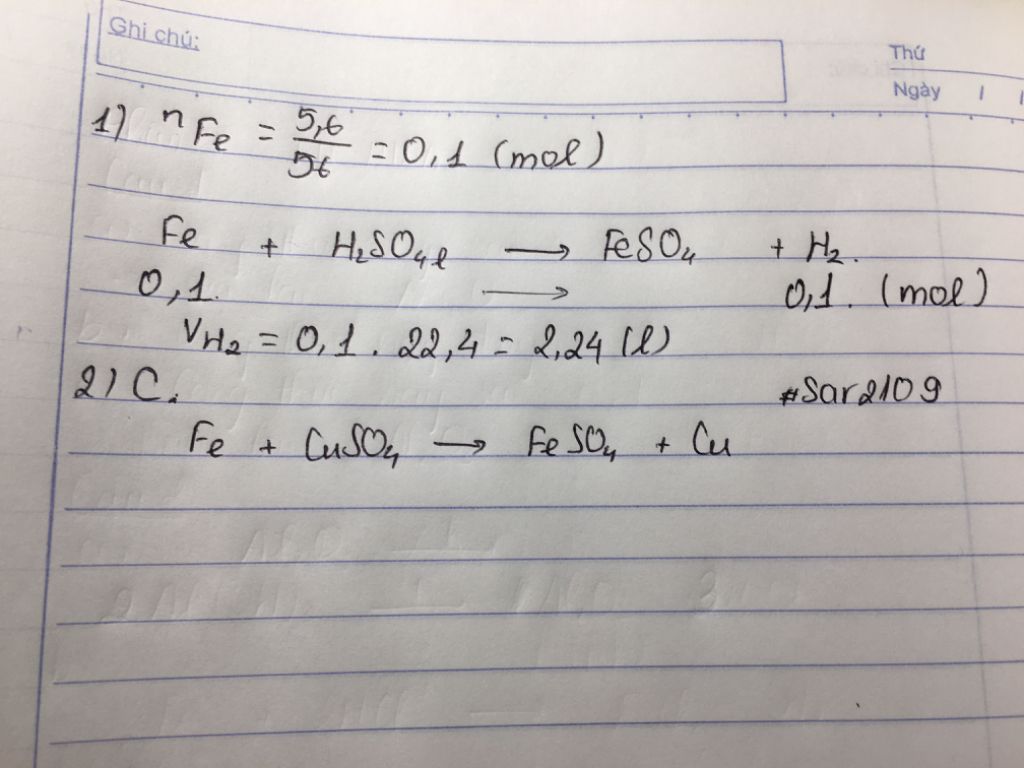 Ghi chú:
Thứ
Ngày / /
1) nFe = 5,6/56 = 0,1 (mol)
Fe + H₂SO₄ l → FeSO₄ + H₂.
0,1. → 0,1. (mol)
VH₂ = 0,1 . 22,4 = 2,24 (l)
2) C.
#Sar2109
Fe + CuSO₄ → FeSO₄ + Cu